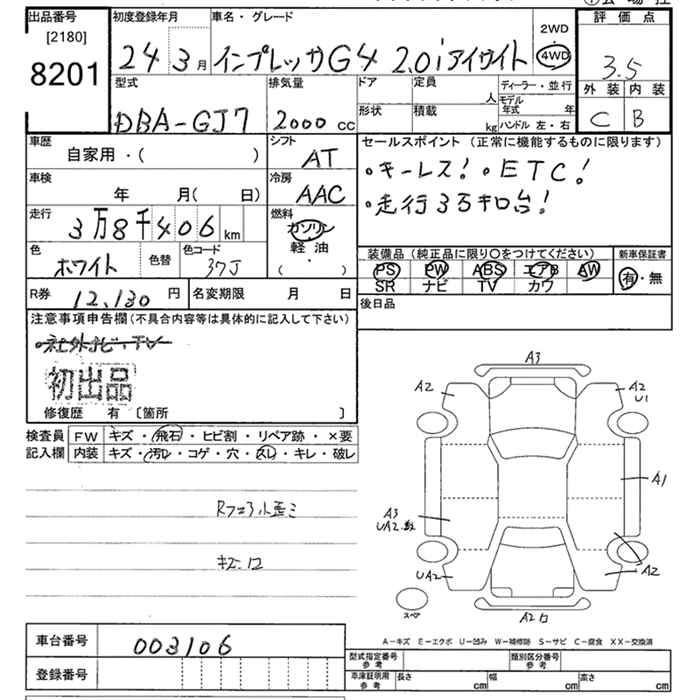 出品番号 初度登録年月 車名・グレード 2WD 評価点
[2180] 24 3月 インプレッサG4 2.0iアイサイト 4WD 3.5
8201 型式 排気量 ドア 定員 人 ディーラー・並行 外装 内装
DBA-GJ7 2000cc 形状 積載 kg モデル年式 年 ハンドル 左・右 C B
車歴 シフト セールスポイント(正常に機能するものに限ります)
自家用・( ) AT ・キーレス!・ETC!
車検 冷房 ・走行3万キロ台!
年 月( 日) AAC
走行 燃料
3万8千406km ガソリン
色 色替 色コード 軽油 装備品(純正品に限り○をつけてください) 新車保証書
ホワイト 37J ・ PS PW ABS エアB AW 有・無
( ) SR ナビ TV カワ
R券 12,130円 名変期限 月 日 後日品
注意事項申告欄(不具合内容等は具体的に記入して下さい)
・社外ナビ・TV
初出品
修復歴 有 〔箇所 〕
検査員 FW キズ・飛石・ヒビ割・リペア跡・×要
記入欄 内装 キズ・汚レ・コゲ・穴・スレ・キレ・破レ
A3
A2 A2
U1
A1
A3
UA2
UA2 A2
スペア A2
車台番号 003106
登録番号
A−キズ E−エクボ U−凹み W−補修跡 S−サビ C−腐食 XX−交換済
型式指定番号 参考 類別区分番号 参考
車庫証明用 参考 長さ cm 幅 cm 高さ cm